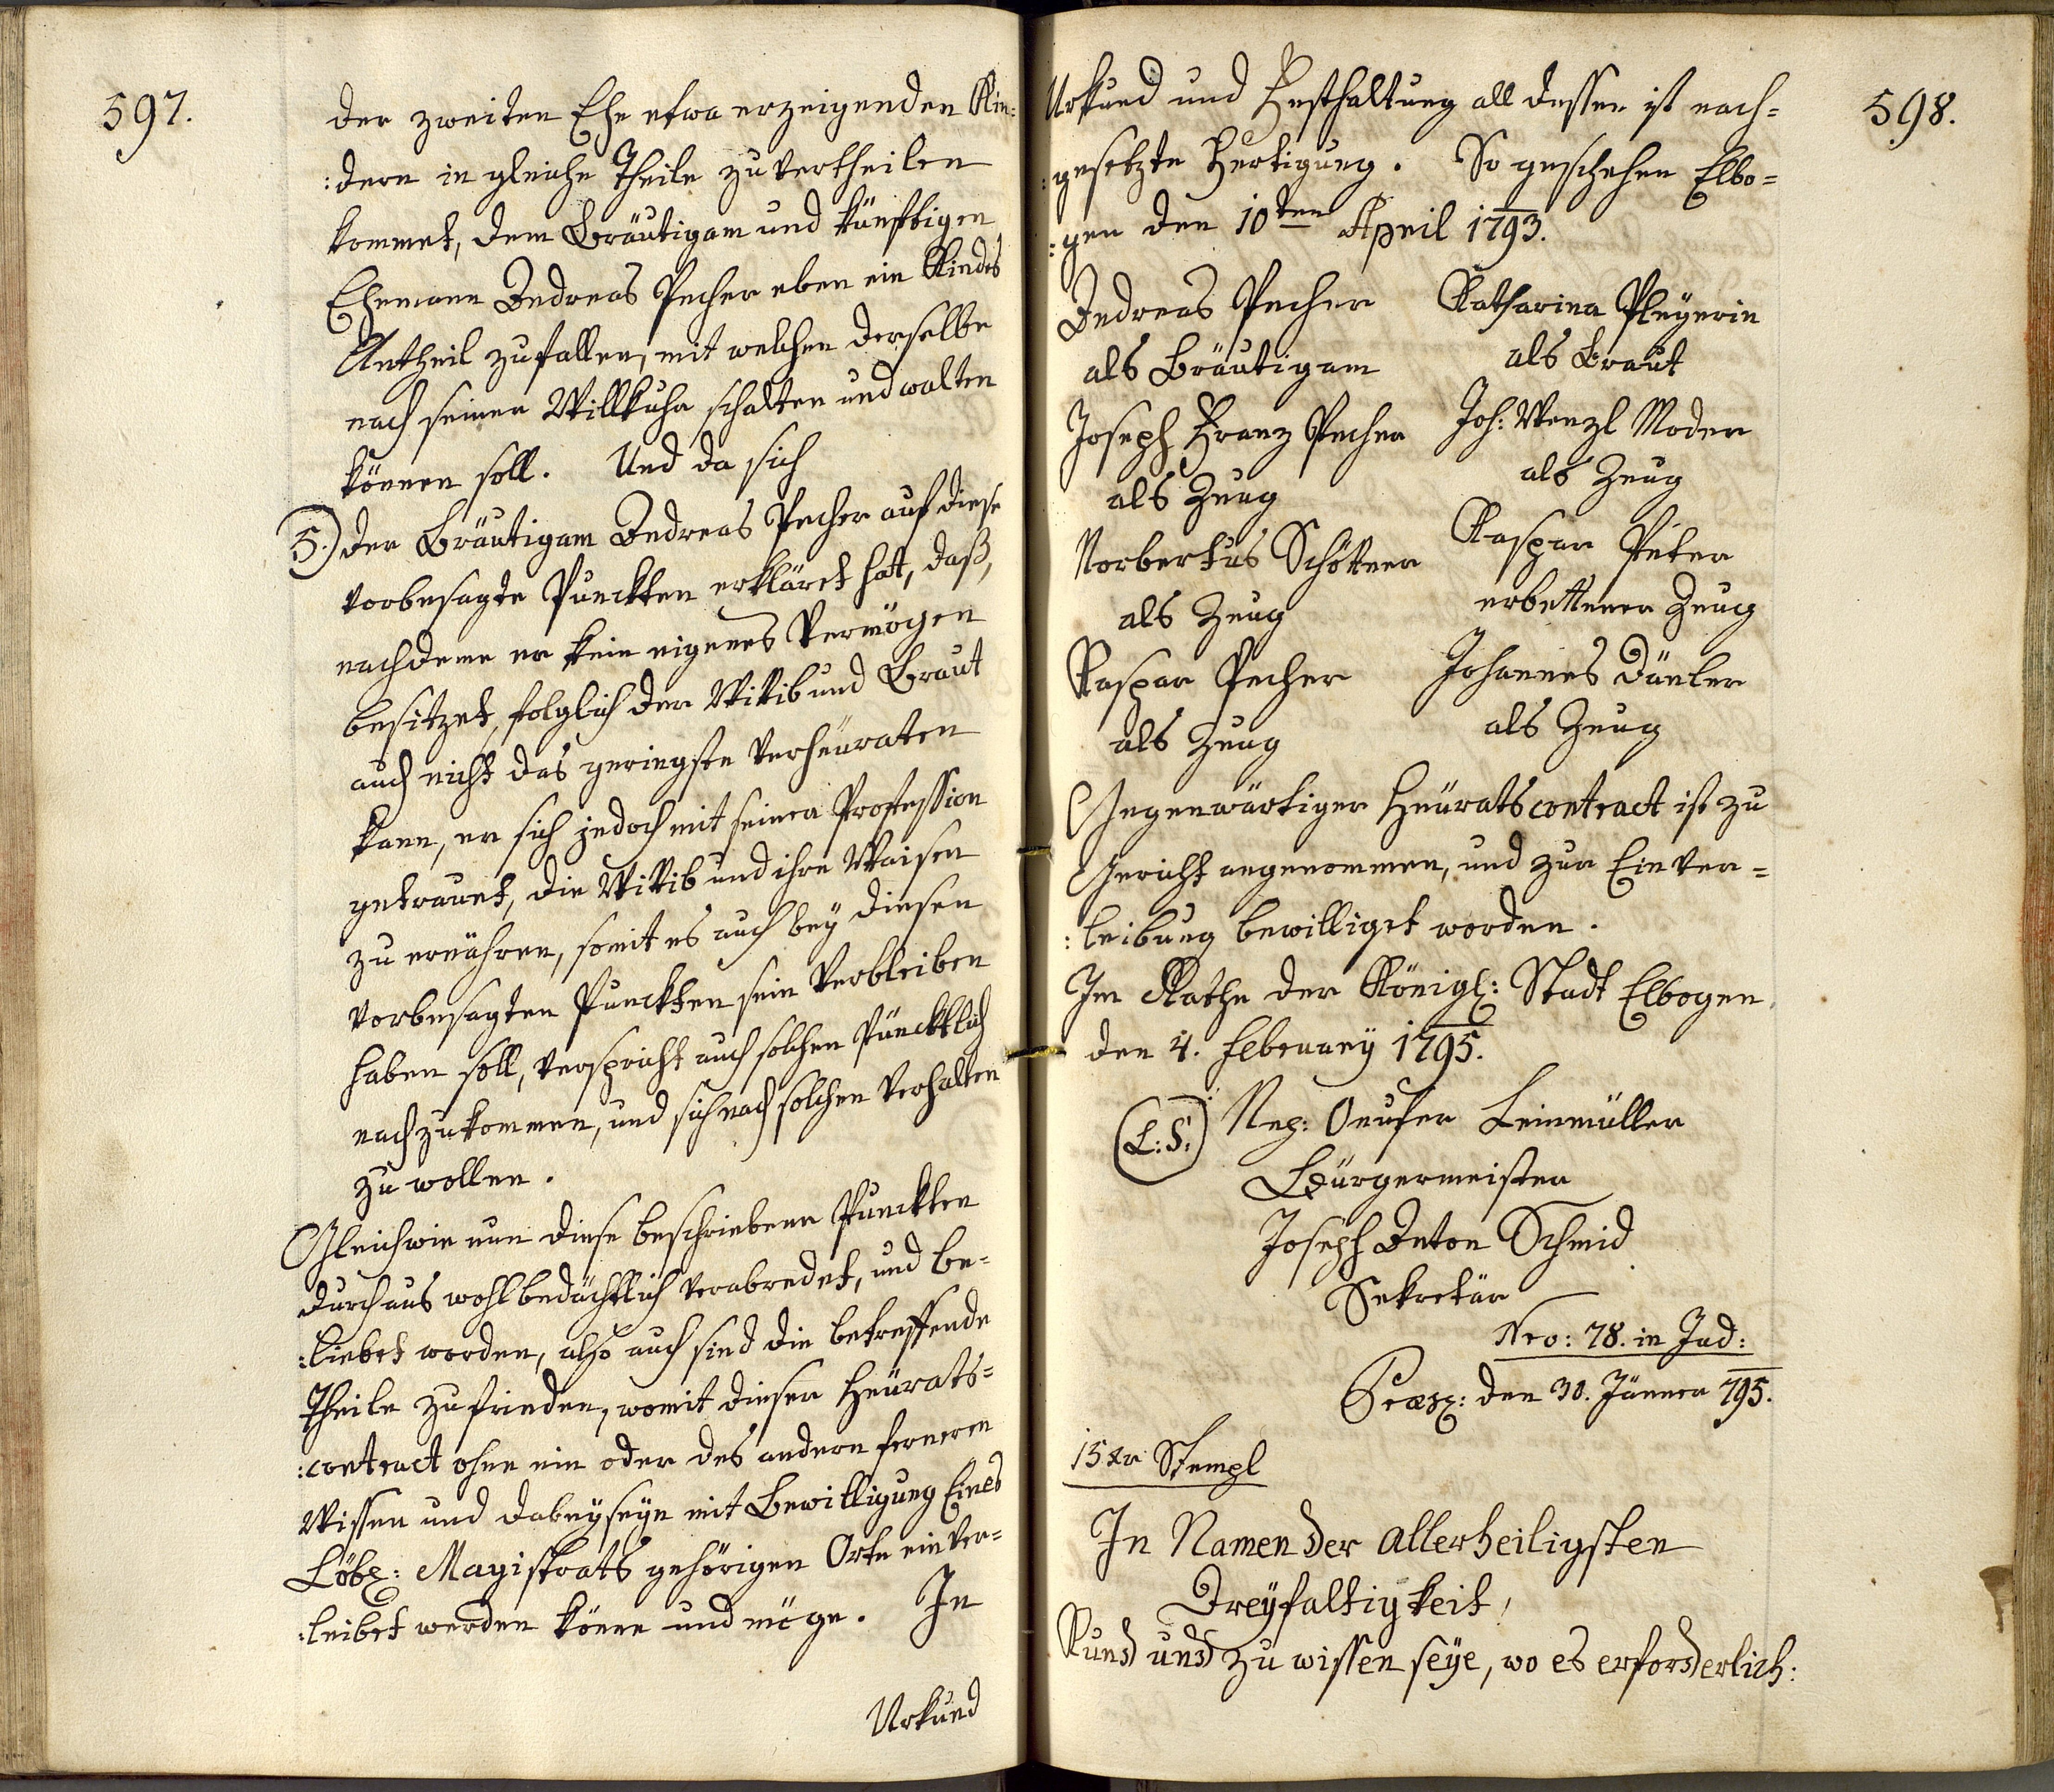 597.
der zweiten Ehe etwa erzeigenden Kin:
:dern in gleiche Theile zu vertheilen
kommet, dem Bräutigam und künftigen
Ehemann Andreas Pecher eben ein Kindes
Antheil zufallen, mit welchen derselbe
nach seiner Willkuhr schalten und walten
können soll. Und da sich
5.) der Bräutigam Andreas Pecher auf diese
vorbesagte Punckten erkläret hatt, daß,
nachdeme er kein eigenes Vermögen
besitzet, folglich der Wittib und Braut
auch nicht das geringste verheuraten
kann, er sich jedoch mit seiner Profession
getrauet, die Wittib und ihre Waisen
zu ernähren, somit es auch bey diesen
vorbesagten Punckten sein Verbleiben
haben soll, verspricht auch solchen püncktlich
nachzukommen, und sich nach solchen verhalten
zu wollen.
Gleichwie nun diese beschriebene Punckten
durchaus wohlbedächtlich verabredet, und be-
:liebet worden, also auch sind die betreffende
Theile zufrieden, womit dieser Heürats-
:contract ohne ein oder des andern ferneren
Wissen und dabeyseyn mit Bewilligung Eines
Löbl: Magistrats gehörigen Orts einver-
:leibet werden könne und möge. In
Urkund
598.
Urkund und Festhaltung all dessen ist nach-
:gesetzte Fertigung. So geschehen Elbo-
:gen den 10ten April 1793.
Andreas Pecher Katharina Pleyerin
als Bräutigam als Braut
Joseph Franz Pecher Joh: Wenzl Moder
als Zeug als Zeug
Norbertus Schöttner Kaspar Peter
als Zeug erbettener Zeug
Kaspar Pecher Johannes Däuler
als Zeug als Zeug
Gegenwärtiger Heürats contract ist zu
Gericht angenommen, und zur Einver-
:leibung bewilliget worden.
Im Rathe der Königl: Stadt Elbogen
den 4. February 1795.
(L:S:) Nep: Onufer Leinmüller
Bürgermeister
Joseph Anton Schmid
Sekretär
Nro: 78. in Jud:
Præs: den 30. Jänner 795.
15 xr Stempl
In Namen der allerheiligsten
Dreyfaltigkeit,
Kund und zu wissen seye, wo es erforderlich: